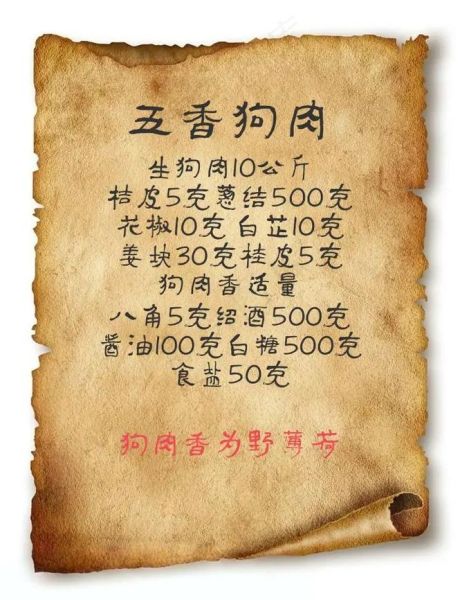 五香狗肉
生狗肉10公斤
桔皮5克葱结500克
花椒10克 白芷10克
姜块30克桂皮5克
狗肉香适量
八角5克绍酒500克
酱油100克白糖500克
食盐50克
狗肉香为野薄荷